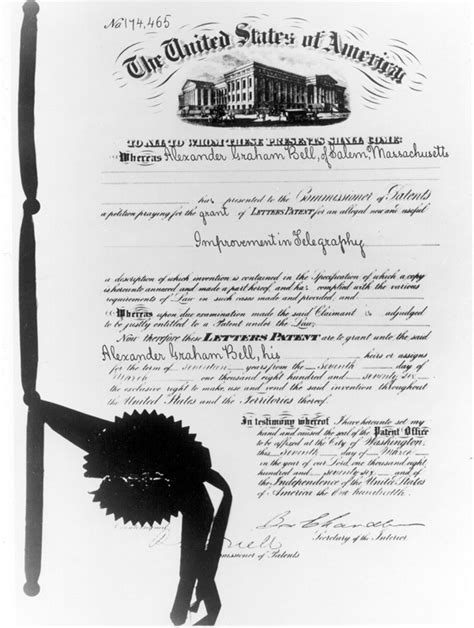 No. 174,465
The United States of America
TO ALL TO WHOM THESE PRESENTS SHALL COME:
Whereas Alexander Graham Bell, of Salem, Massachusetts
has presented to the Commissioner of Patents
a petition praying for the grant of LETTERS PATENT for an alleged new and useful
Improvement in Telegraphy
a description of which invention is contained in the Specification of which a copy
is hereunto annexed and made a part hereof, and has complied with the various
requirements of Law in such cases made and provided, and
Whereas upon due examination made the said Claimant is adjudged
to be justly entitled to a Patent under the Law;
Now therefore these LETTERS PATENT are to grant unto the said
Alexander Graham Bell, his heirs or assigns
for the term of seventeen years from the seventh day of
March one thousand eight hundred and seventy six
the exclusive right to make, use and vend the said invention throughout
the United States and the Territories thereof.
In testimony whereof I have hereunto set my
hand and caused the seal of the Patent Office
to be affixed at the City of Washington
this seventh day of March
in the year of our Lord one thousand eight
hundred and seventy six and of
the Independence of the United States
of America the One hundredth.
Secretary of the Interior
Commissioner of Patents